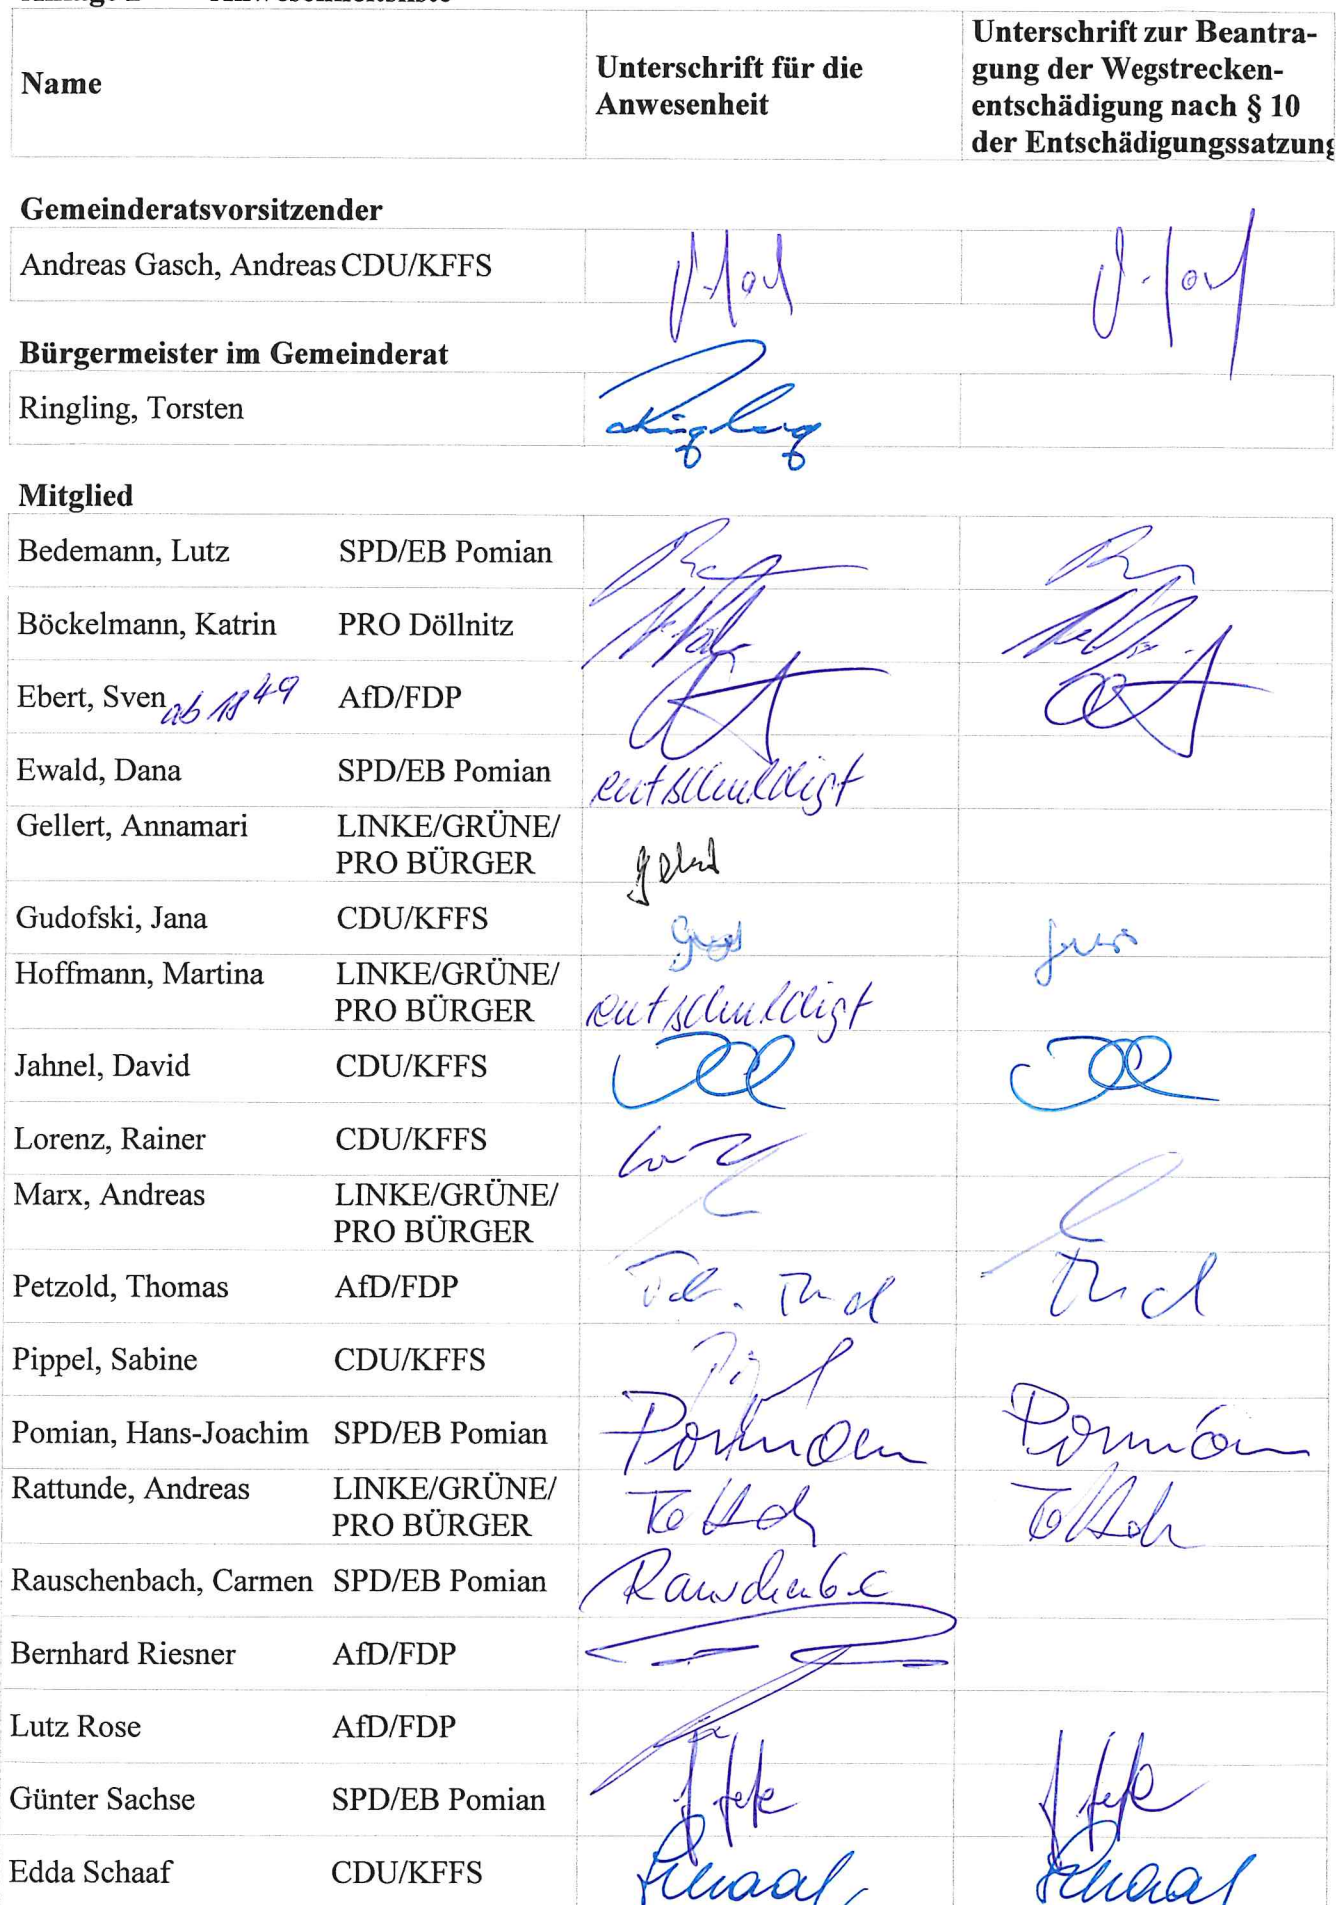 Name
Unterschrift für die
Anwesenheit
Unterschrift zur Beantra-
gung der Wegstrecken-
entschädigung nach § 10
der Entschädigungssatzung
Gemeinderatsvorsitzender
Andreas Gasch, Andreas CDU/KFFS
Bürgermeister im Gemeinderat
Ringling, Torsten
Mitglied
Bedemann, Lutz SPD/EB Pomian
Böckelmann, Katrin PRO Döllnitz
Ebert, Sven ab 18 49 AfD/FDP
Ewald, Dana SPD/EB Pomian entschuldigt
Gellert, Annamari LINKE/GRÜNE/
PRO BÜRGER
Gudofski, Jana CDU/KFFS
Hoffmann, Martina LINKE/GRÜNE/
PRO BÜRGER entschuldigt
Jahnel, David CDU/KFFS
Lorenz, Rainer CDU/KFFS
Marx, Andreas LINKE/GRÜNE/
PRO BÜRGER
Petzold, Thomas AfD/FDP
Pippel, Sabine CDU/KFFS
Pomian, Hans-Joachim SPD/EB Pomian Pomian Pomian
Rattunde, Andreas LINKE/GRÜNE/
PRO BÜRGER
Rauschenbach, Carmen SPD/EB Pomian
Bernhard Riesner AfD/FDP
Lutz Rose AfD/FDP
Günter Sachse SPD/EB Pomian
Edda Schaaf CDU/KFFS Schaaf Schaaf